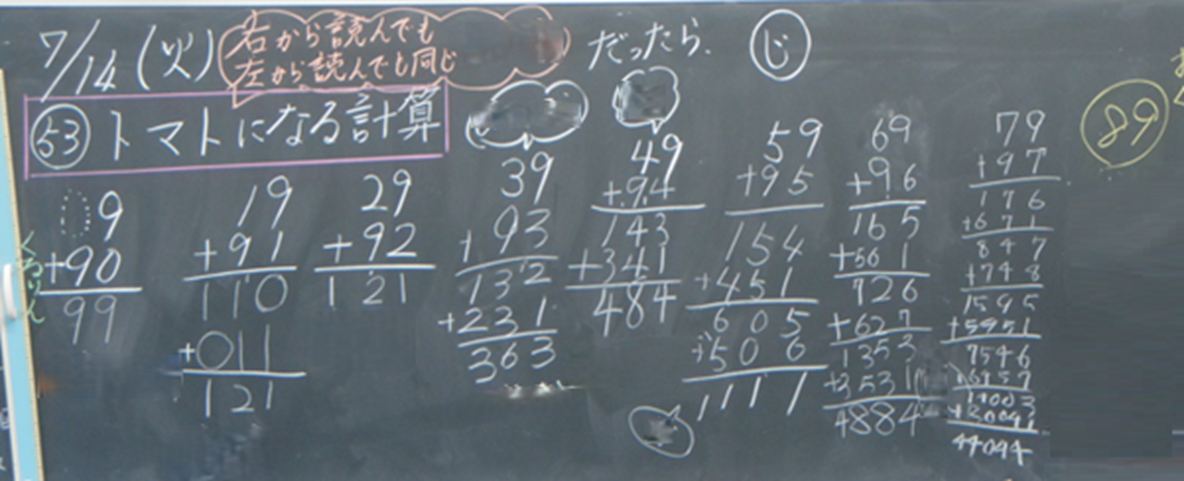 7/14(火)
右から読んでも
左から読んでも同じ
だったら、
じ
53 トマトになる計算
89
09
+90
99
19
+91
110
+011
121
29
+92
121
39
+93
132
+231
363
49
+94
143
+341
484
59
+95
154
+451
605
+506
1111
69
+96
165
+561
726
+627
1353
+3531
4884
79
+97
176
+671
847
+748
1595
+5951
7546
+6457
14003
+30041
44044